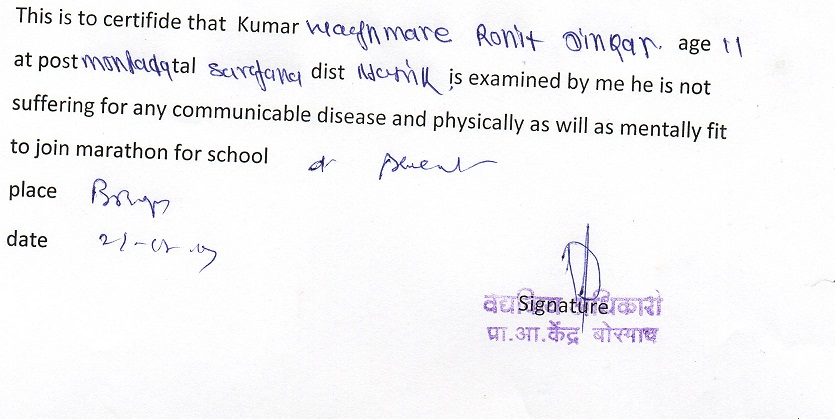 This is to certifide that Kumar Waghmare Rohit Dinkar. age 11
at post tal Surgana dist Nashik is examined by me he is not
suffering for any communicable disease and physically as will as mentally fit
to join marathon for school at present
place
date
Signature
प्रा.आ.केंद्र